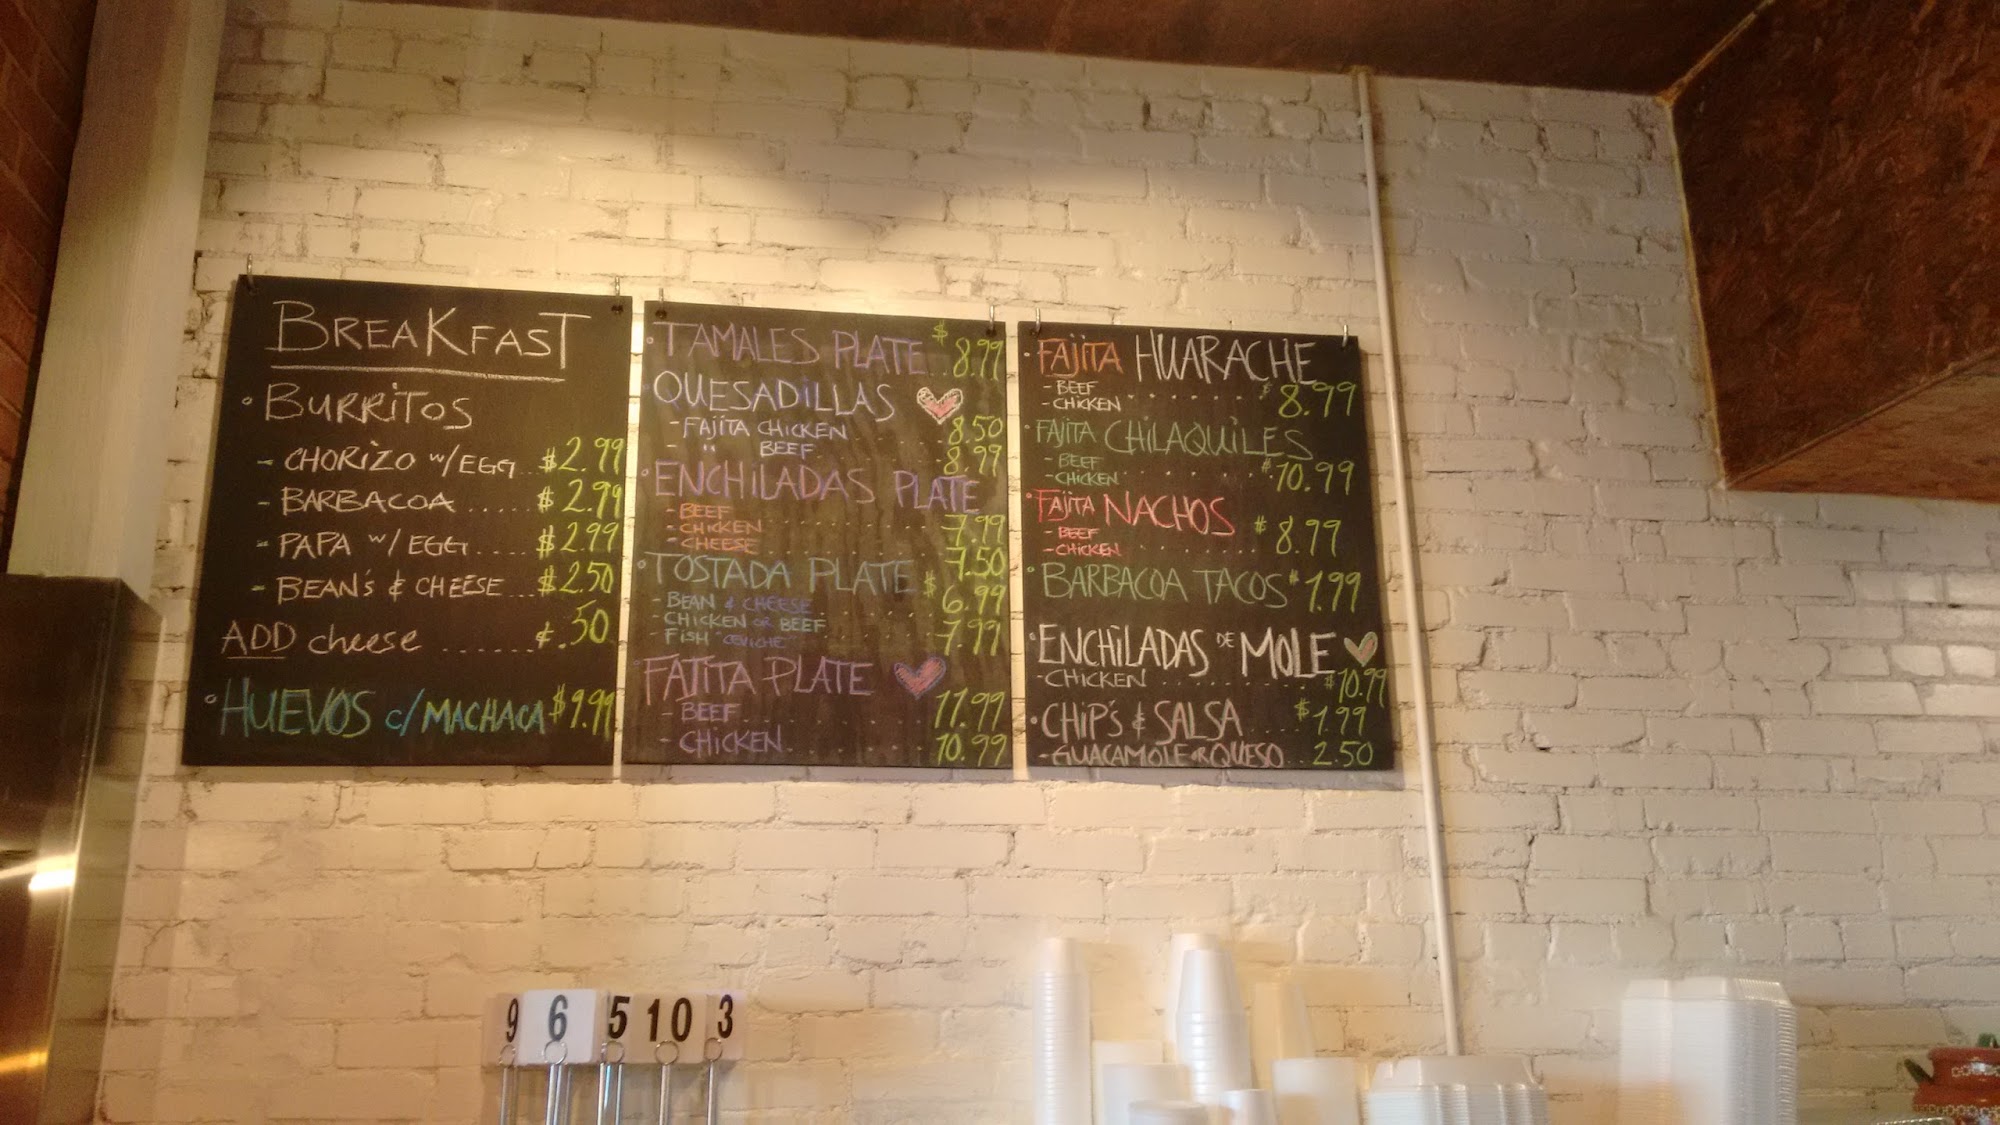 BREAKFAST
• BURRITOS
- CHORIZO w/EGG...$2.99
- BARBACOA.......$2.99
- PAPA w/EGG.....$2.99
- BEAN'S & CHEESE...$2.50
ADD cheese.......¢.50
° HUEVOS c/MACHACA $9.99
• TAMALES PLATE..$8.99
QUESADILLAS
- FAJITA CHICKEN.......8.50
- " BEEF.......8.99
• ENCHILADAS PLATE
- BEEF
- CHICKEN.......7.99
- CHEESE.......7.50
• TOSTADA PLATE $
- BEAN & CHEESE.......6.99
- CHICKEN OR BEEF
- FISH "CEVICHE".......7.99
• FAJITA PLATE
- BEEF.......11.99
- CHICKEN.......10.99
• FAJITA HUARACHE
- BEEF
- CHICKEN.......$8.99
• FAJITA CHILAQUILES
- BEEF
- CHICKEN.......$10.99
• FAJITA NACHOS
- BEEF
- CHICKEN.......$8.99
• BARBACOA TACOS $1.99
• ENCHILADAS DE MOLE
- CHICKEN.......$10.99
• CHIP'S & SALSA....$1.99
- GUACAMOLE OR QUESO..2.50
9 6 5 10 3